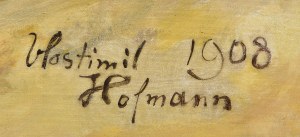 Vlastimil 1908
Hofmann